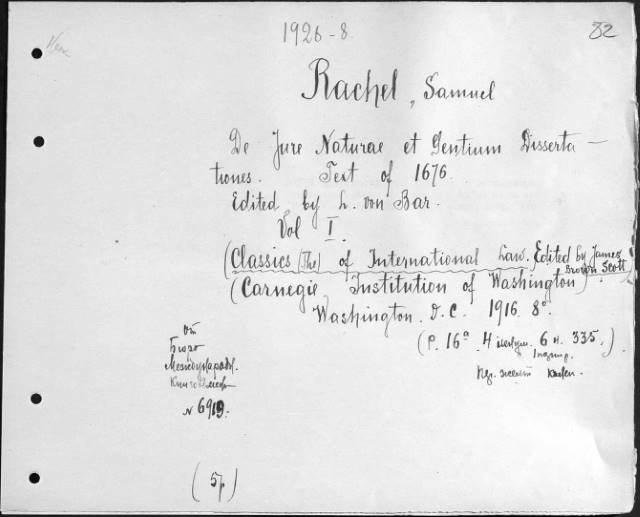 1926-8.
32
Rachel, Samuel
De Jure Naturae et Gentium Disserta-
tiones. Text of 1676.
Edited by L. von Bar.
Vol I.
(Classics (The) of International Law. Edited by James
Brown Scott
(Carnegie Institution of Washington)
Washington. D.C. 1916. 8°.
(P. 16a. 4 6 н. 335.)
От
Бюро
Международн.
Книгообмен
N 6919.
(57)